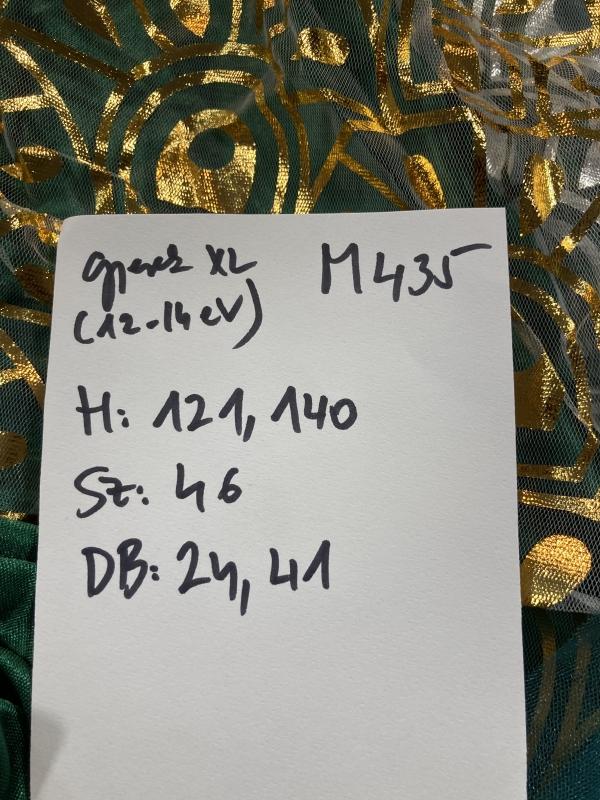 gyerek XL M435
(12-14 eV)
H: 121, 140
Sz: 46
DB: 24, 41